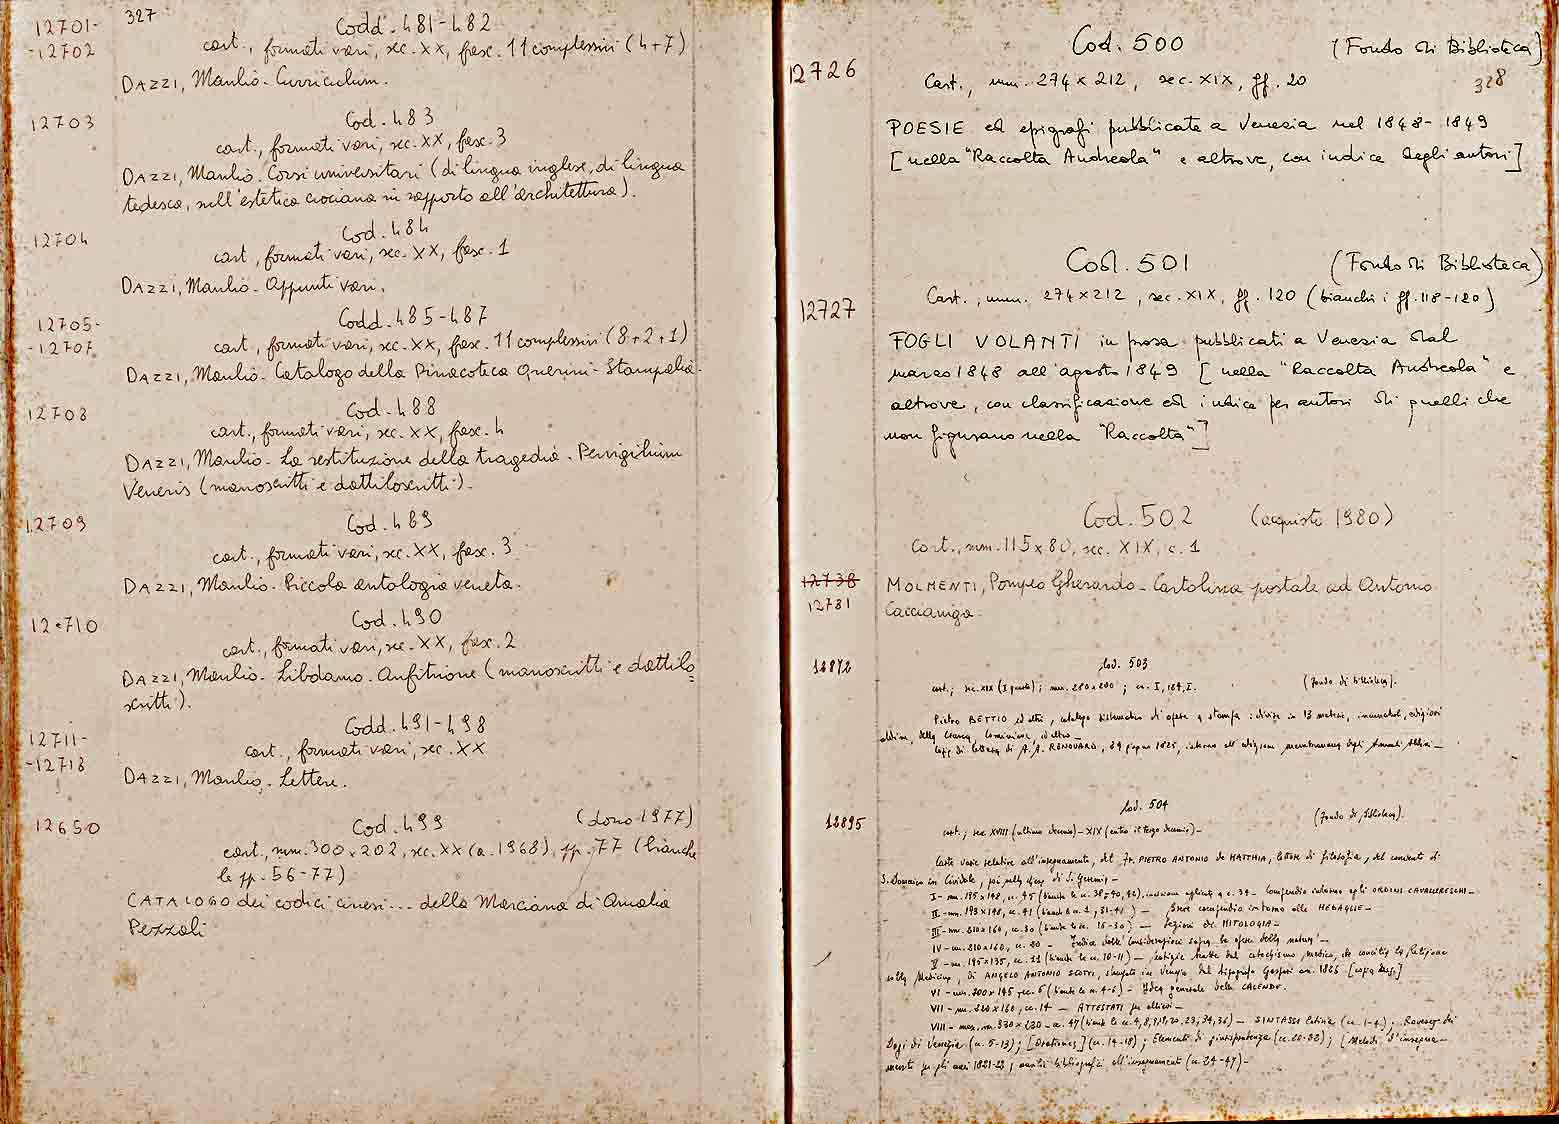 327
12701-
-12702
Codd. 481-482
cart., formati vari, sec. XX, fasc. 11 complessivi (4+7)
DAZZI, Manlio - Curriculum.
12703
Cod. 483
cart., formati vari, sec. XX, fasc. 3
DAZZI, Manlio. Corsi universitari (di lingua inglese, di lingua
tedesca, sull'estetica crociana in rapporto all'architettura).
12704
Cod. 484
cart., formati vari, sec. XX, fasc. 1
DAZZI, Manlio - Appunti vari.
12705-
-12707
Codd. 485-487
cart., formati vari, sec. XX, fasc. 11 complessivi (8+2+1)
DAZZI, Manlio - Catalogo della Pinacoteca Querini-Stampalia.
12708
Cod. 488
cart., formati vari, sec. XX, fasc. 4
DAZZI, Manlio - La restituzione della tragedia - Pervigilium
Veneris (manoscritti e dattiloscritti).
12709
Cod. 489
cart., formati vari, sec. XX, fasc. 3
DAZZI, Manlio - Piccola antologia veneta.
12710
Cod. 490
cart., formati vari, sec. XX, fasc. 2
DAZZI, Manlio - Libdamo - Anfitrione (manoscritti e dattilo=
scritti).
12711-
-12718
Codd. 491-498
cart., formati vari, sec. XX
DAZZI, Manlio - Lettere.
12650
Cod. 499 (dono 1977)
cart., mm. 300x202, sec. XX (a. 1968), pp. 77 (bianche
le pp. 56-77)
CATALOGO dei codici cinesi... della Marciana di Amalia
Pezzali
328
12726
Cod. 500 (Fondo di Biblioteca)
Cart., mm. 274x212, sec. XIX, ff. 20
POESIE ed epigrafi pubblicate a Venezia nel 1848-1849
[nella "Raccolta Andreola" e altrove, con indice degli autori]
12727
Cod. 501 (Fondo di Biblioteca)
Cart., mm. 274x212, sec. XIX, ff. 120 (bianchi i ff. 118-120)
FOGLI VOLANTI in prosa pubblicati a Venezia dal
marzo 1848 all'agosto 1849 [nella "Raccolta Andreola" e
altrove, con classificazione ed indice per autori di quelli che
non figurano nella "Raccolta"]
12738
12781
Cod. 502 (acquisto 1980)
Cart., mm. 115x80, sec. XIX, c. 1
MOLMENTI, Pompeo Gherardo - Cartolina postale ad Antonio
Caccianiga.
12872
Cod. 503
(Fondo di biblioteca).
cart.; sec. XIX (I metà); mm. 280x200; cc. I, 184, I.
Pietro BETTIO ed altri, catalogo sistematico di opere a stampa: divise in 13 materie, incunaboli, edizioni
aldine, della Crusca, cominiane, ed altro -
Copia di lettera di A. A. RENOUARD, 29 giugno 1825, intorno all'edizione degli Annali Aldini -
12895
Cod. 504
(Fondo di biblioteca).
cart.; sec. XVIII (ultimo decennio) - XIX (entro il terzo decennio) -
Carte varie relative all'insegnamento, del Fr. PIETRO ANTONIO de MATTHIA, lettore di filosofia, del convento di
S. Domenico in Cividale, poi nella di S. Geremia -
I - mm. 195x148, cc. 45 - Compendio intorno agli ORDINI CAVALLERESCHI -
II - mm. 193x148, cc. 41 - Breve compendio intorno alle MEDAGLIE -
III - mm. 210x160, cc. 30 (bianche le cc. 15-30) - Lezioni di MITOLOGIA -
IV - mm. 210x160, cc. 20 - Indice delle "Considerazioni sopra le opere della natura" -
V - mm. 195x135, cc. 11 (bianche le cc. 10-11) - tratte dal catechismo medico,
di ANGELO ANTONIO SCOTTI, stampato in Venezia dal tipografo Gaspari an. 1826
VI - mm. 200x145, cc. 6 (bianche le cc. 4-6) - Idea generale delle CALENDE.
VII - mm. 220x160, cc. 14 - ATTESTATI per allievi -
VIII - mm. 330x230 - cc. 47 - SINTASSI latina (cc. 1-4); Rovesci dei
Dogi di Venezia (cc. 5-13); [Orationes] (cc. 14-18); Elementi di giurisprudenza (cc. 20-32); [Metodi d'insegna-
mento per gli anni 1821-22; notizie bibliografiche all'insegnamento (cc. 34-47) -